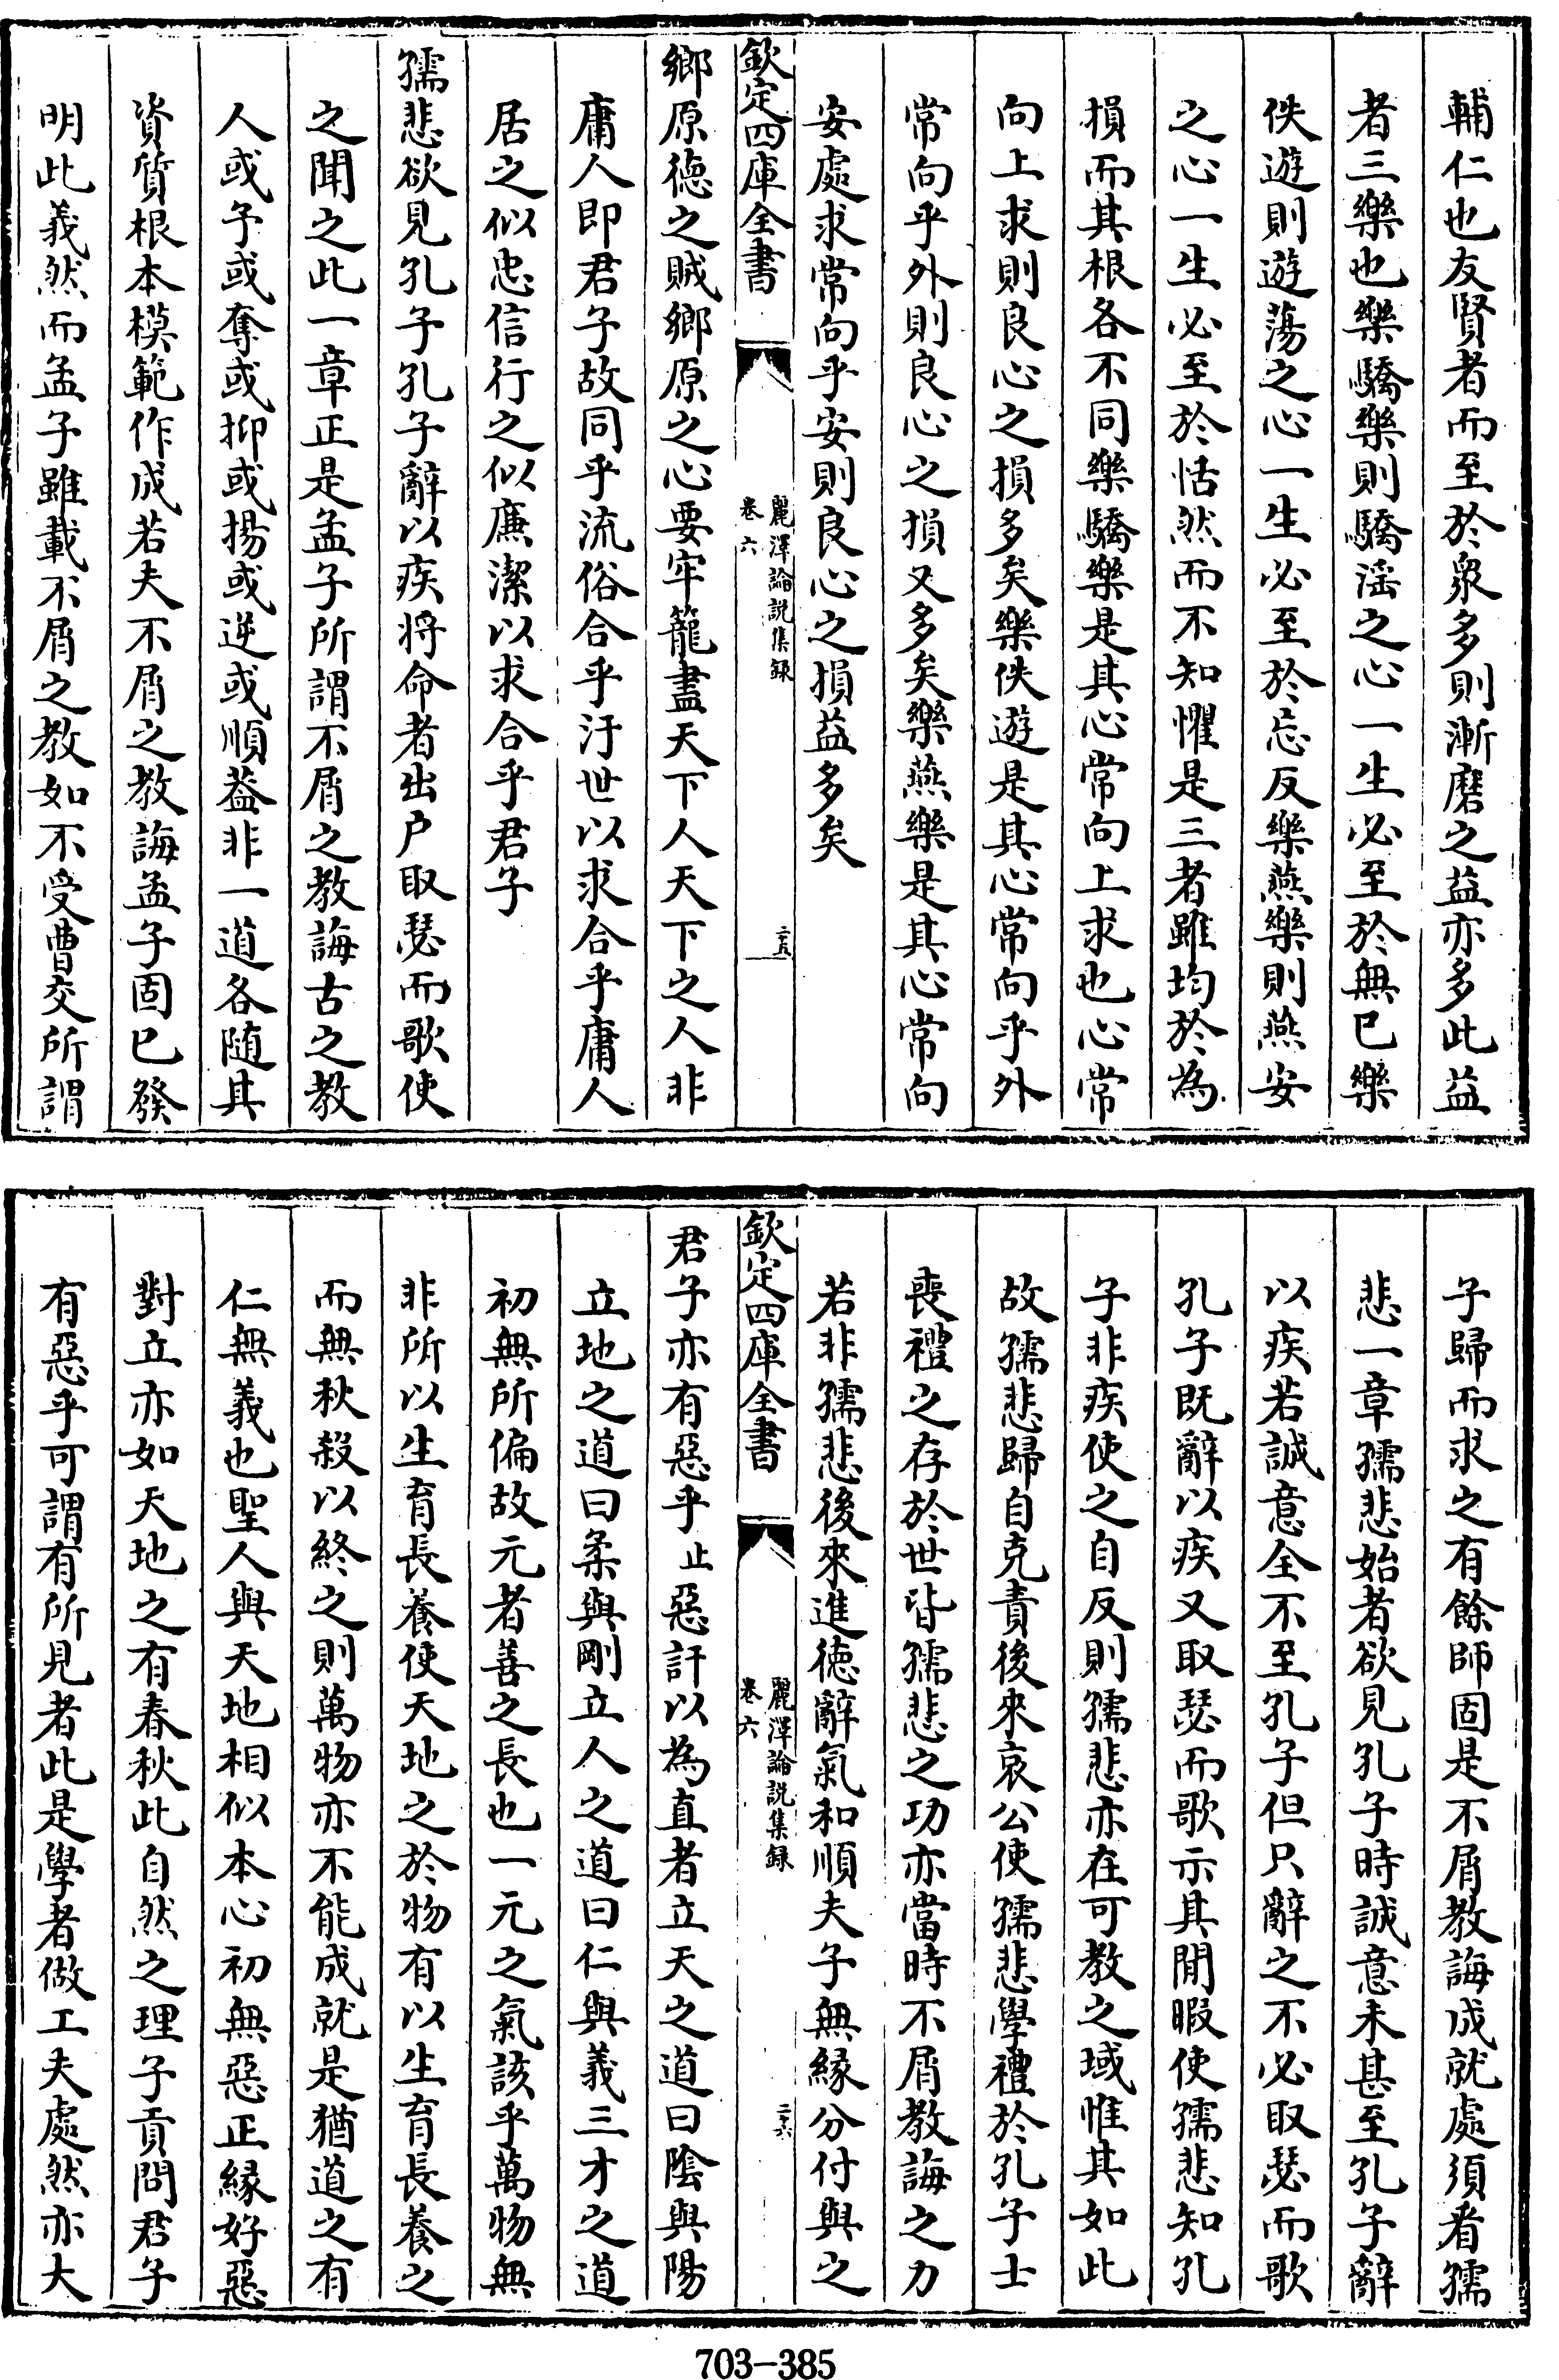 輔仁也友賢者而至於衆多則漸磨之益亦多此益
者三樂也樂驕樂則驕滛之心一生必至於無已樂
佚遊則遊蕩之心一生必至於忘反樂燕樂則燕安
之心一生必至於恬然而不知懼是三者雖均於為
損而其根各不同樂驕樂是其心常向上求也心常
向上求則良心之損多矣樂佚遊是其心常向乎外
常向乎外則良心之損又多矣樂燕樂是其心常向
安處求常向乎安則良心之損益多矣
欽定四庫全書
麗澤論說集録
卷六
二十五
鄉原徳之賊鄉原之心要牢籠盡天下人天下之人非
庸人即君子故同乎流俗合乎汙世以求合乎庸人
居之似忠信行之似廉潔以求合乎君子
孺悲欲見孔子孔子辭以疾将命者出户取瑟而歌使
之聞之此一章正是孟子所謂不屑之教誨古之教
人或予或奪或抑或揚或逆或順葢非一道各随其
資質根本模範作成若夫不屑之教誨孟子固已發
明此義然而孟子雖載不屑之教如不受曹交所謂
子歸而求之有餘師固是不屑教誨成就處須看孺
悲一章孺悲始者欲見孔子時誠意未甚至孔子辭
以疾若誠意全不至孔子但只辭之不必取瑟而歌
孔子既辭以疾又取瑟而歌示其閒暇使孺悲知孔
子非疾使之自反則孺悲亦在可教之域惟其如此
故孺悲歸自克責後來哀公使孺悲學禮於孔子士
喪禮之存於世皆孺悲之功亦當時不屑教誨之力
若非孺悲後來進徳辭氣和順夫子無縁分付與之
欽定四庫全書
麗澤論說集録
卷六
二十六
君子亦有惡乎止惡訐以為直者立天之道曰隂與陽
立地之道曰柔與剛立人之道曰仁與義三才之道
初無所偏故元者善之長也一元之氣該乎萬物無
非所以生育長養使天地之於物有以生育長養之
而無秋殺以終之則萬物亦不能成就是猶道之有
仁無義也聖人與天地相似本心初無惡正縁好惡
對立亦如天地之有春秋此自然之理子貢問君子
有惡乎可謂有所見者此是學者做工夫處然亦大
703-385